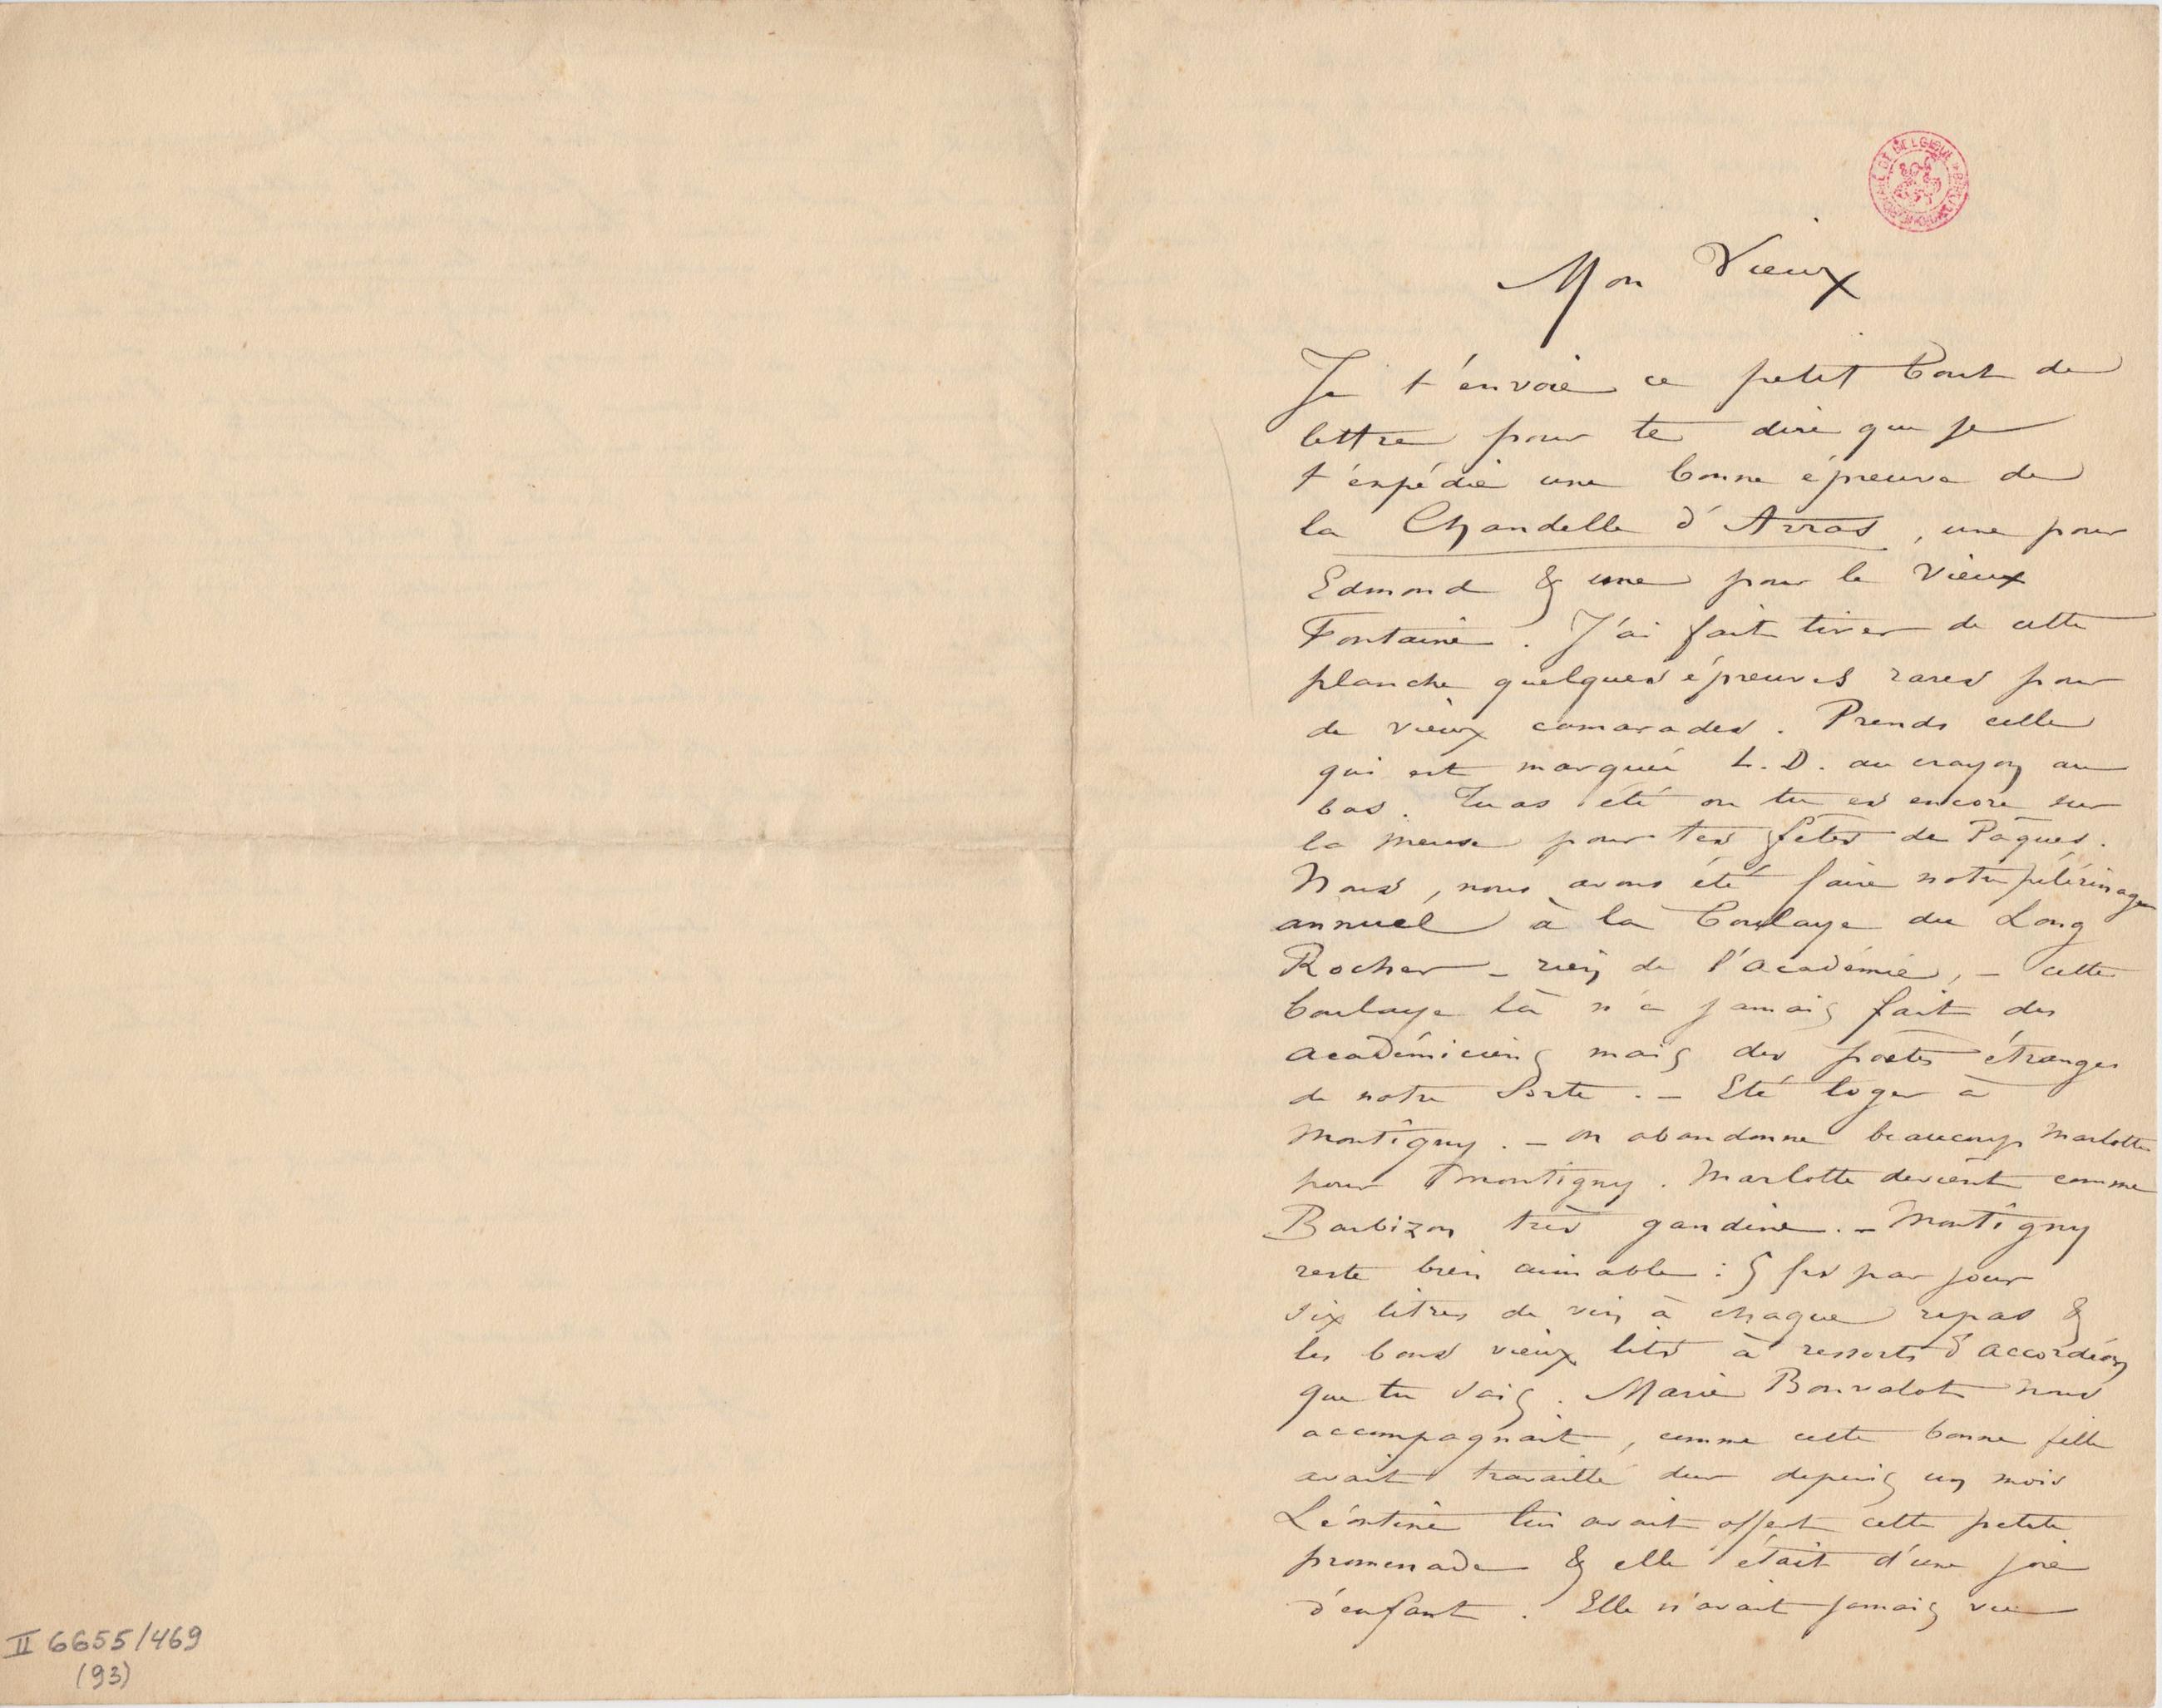 Mon Vieux
Je t'envoie ce petit bout de
lettre pour te dire que je
t'expédie une bonne épreuve de
la Chandelle d'Arras, une pour
Edmond & une pour le Vieux
Fontaine. J'ai fait tirer de cette
planche quelques épreuves rares pour
de vieux camarades. Prends celle
qui est marquée L.D. au crayon au
bas. Tu as été ou tu es encore sur
la Meuse pour tes fêtes de Pâques.
Nous, nous avons été faire notre pélérinage
annuel à la Boulaye du Long
Rocher – rien de l'académie, – cette
boulaye là n'a jamais fait des
académiciens mais des poetes étranges
de notre sorte. – Eté loger à
Montigny. – On abandonne beaucoup Marlotte
pour Montigny. Marlotte devient comme
Barbizon très gandine. – Montigny
reste bien aimable : 5 frs par jour
six litres de vin à chaque repas &
les bons vieux lits à ressorts d'accordéon
que tu sais. Marie Bonvalot nous
accompagnait, comme cette bonne fille
avait travaillé dur depuis un mois
Léontine lui avait offert cette petite
promenade & elle était d'une joie
d'enfant. Elle n'avait jamais vu
II 6655/469
(93)